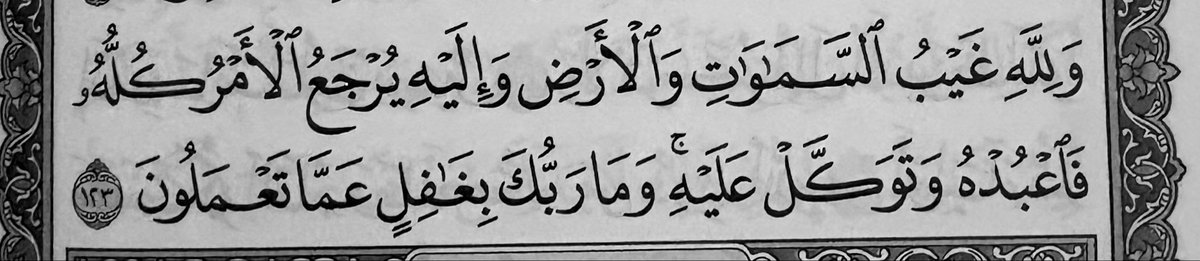 وَلِلَّهِ غَيْبُ ٱلسَّمَٰوَٰتِ وَٱلْأَرْضِ وَإِلَيْهِ يُرْجَعُ ٱلْأَمْرُ كُلُّهُۥ
فَٱعْبُدْهُ وَتَوَكَّلْ عَلَيْهِۚ وَمَا رَبُّكَ بِغَٰفِلٍ عَمَّا تَعْمَلُونَ ١٢٣